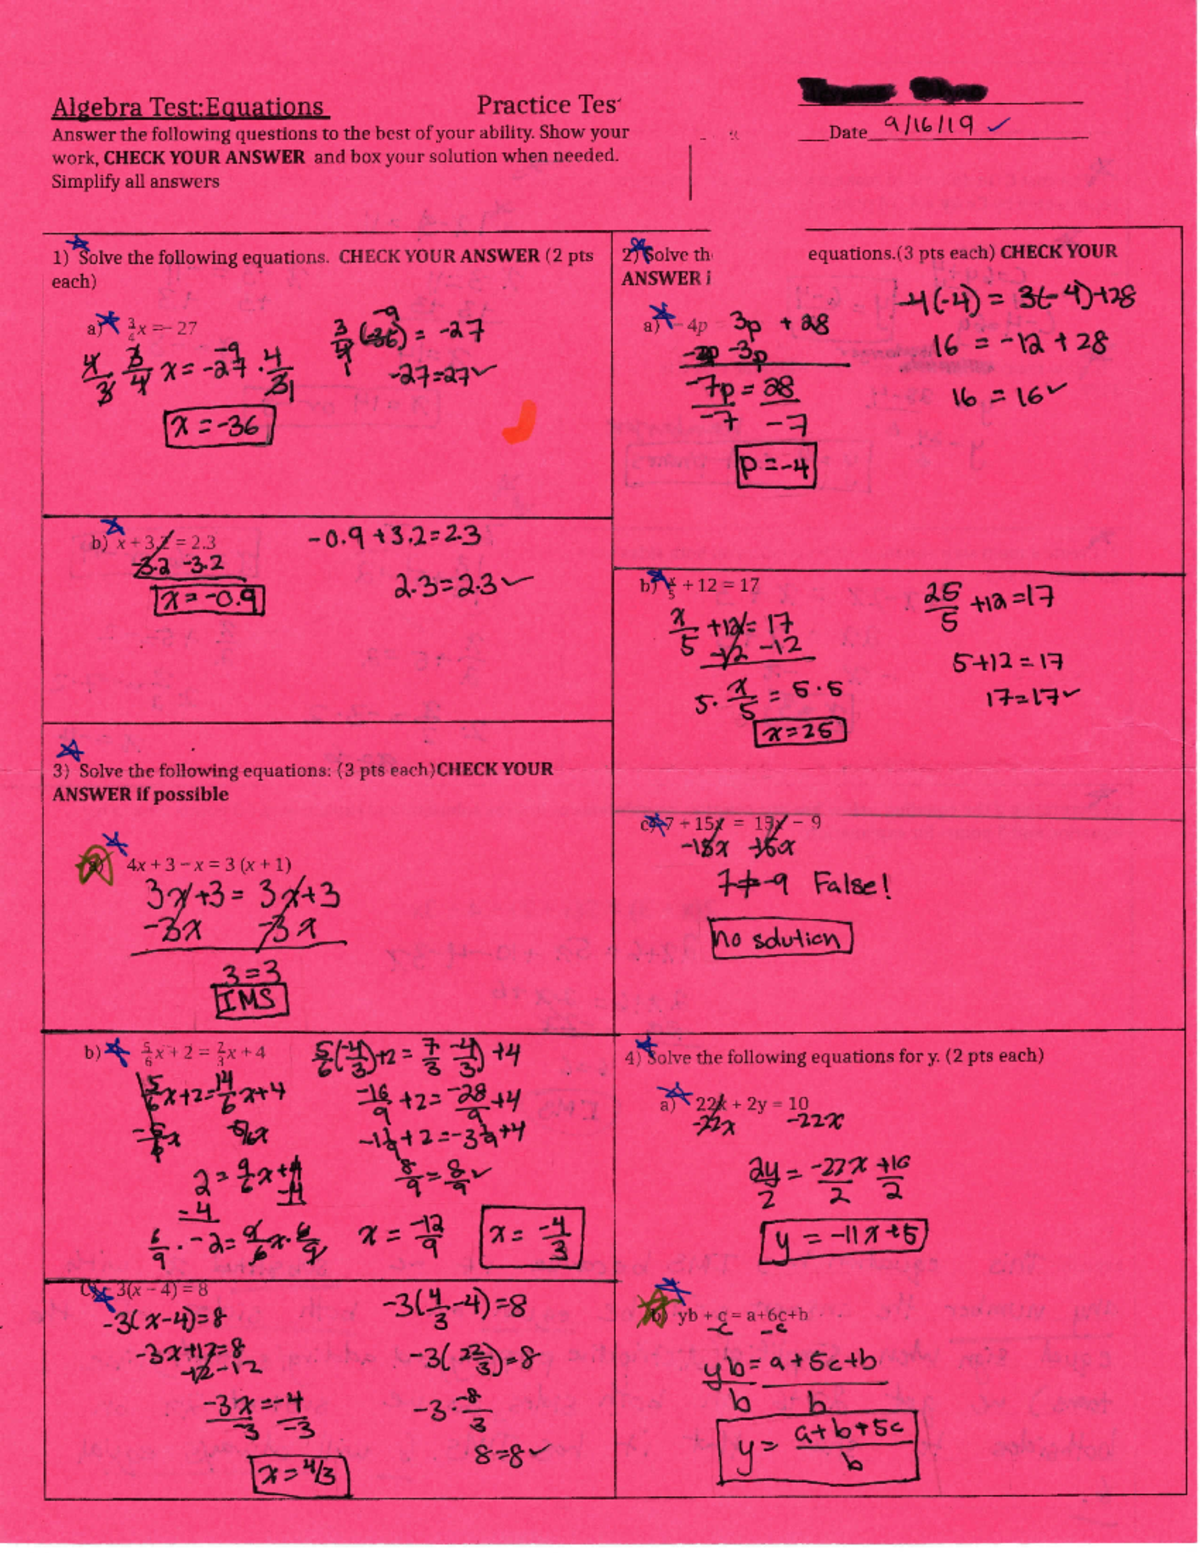 Algebra Test:Equations
Practice Tes
Answer the following questions to the best of your ability. Show your
work, CHECK YOUR ANSWER and box your solution when needed.
Simplify all answers
Date 9/16/19 ✓
1) Solve the following equations. CHECK YOUR ANSWER (2 pts
each)
a) 3/4 x = - 27
4/3 · 3/4 x = -27 · 4/3
-9
x = -36
3/4 (-36) = -27
-9
-27=27✓
b) x + 3.2 = 2.3
-3.2 -3.2
x = -0.9
-0.9 + 3.2 = 2.3
2.3 = 2.3 ✓
2) Solve th equations.(3 pts each) CHECK YOUR
ANSWER i
a) - 4p 3p + 28
-3p -3p
-7p = 28
-7 -7
p = -4
-4(-4) = 3(-4)+28
16 = -12 + 28
16 = 16 ✓
b) x/5 + 12 = 17
x/5 + 12 = 17
-12 -12
5 · x/5 = 5 · 5
x = 25
25/5 + 12 = 17
5+12 = 17
17=17✓
c) 7 + 15x = 15x - 9
-15x -15x
7 ≠ -9 False!
no solution
3) Solve the following equations: (3 pts each)CHECK YOUR
ANSWER if possible
a) 4x + 3 - x = 3 (x + 1)
3x + 3 = 3x + 3
-3x -3x
3 = 3
IMS
b) 5/6 x + 2 = 7/3 x + 4
5/6 x + 2 = 14/6 x + 4
-5/6 x -5/6 x
2 = 9/6 x + 4
-4 -4
6/9 · -2 = 9/6 x · 6/9
x = -12/9
x = -4/3
5/6 (-4/3) + 2 = 7/3 (-4/3) + 4
+2 = -28/9 + 4
-1 1/9 + 2 = -3 1/9 + 4
8/9 = 8/9 ✓
c) - 3(x - 4) = 8
-3(x-4)=8
-3x+12=8
-12 -12
-3x = -4
-3 -3
x = 4/3
-3(4/3 - 4) = 8
=8
-3 · -8/3
8=8✓
4) Solve the following equations for y. (2 pts each)
a) 22x + 2y = 10
-22x -22x
2y/2 = -22x/2 + 10/2
y = -11x + 5
b) yb + c = a+6c+b
-c -c
yb = a + 5c + b
b b
y = a+b+5c / b